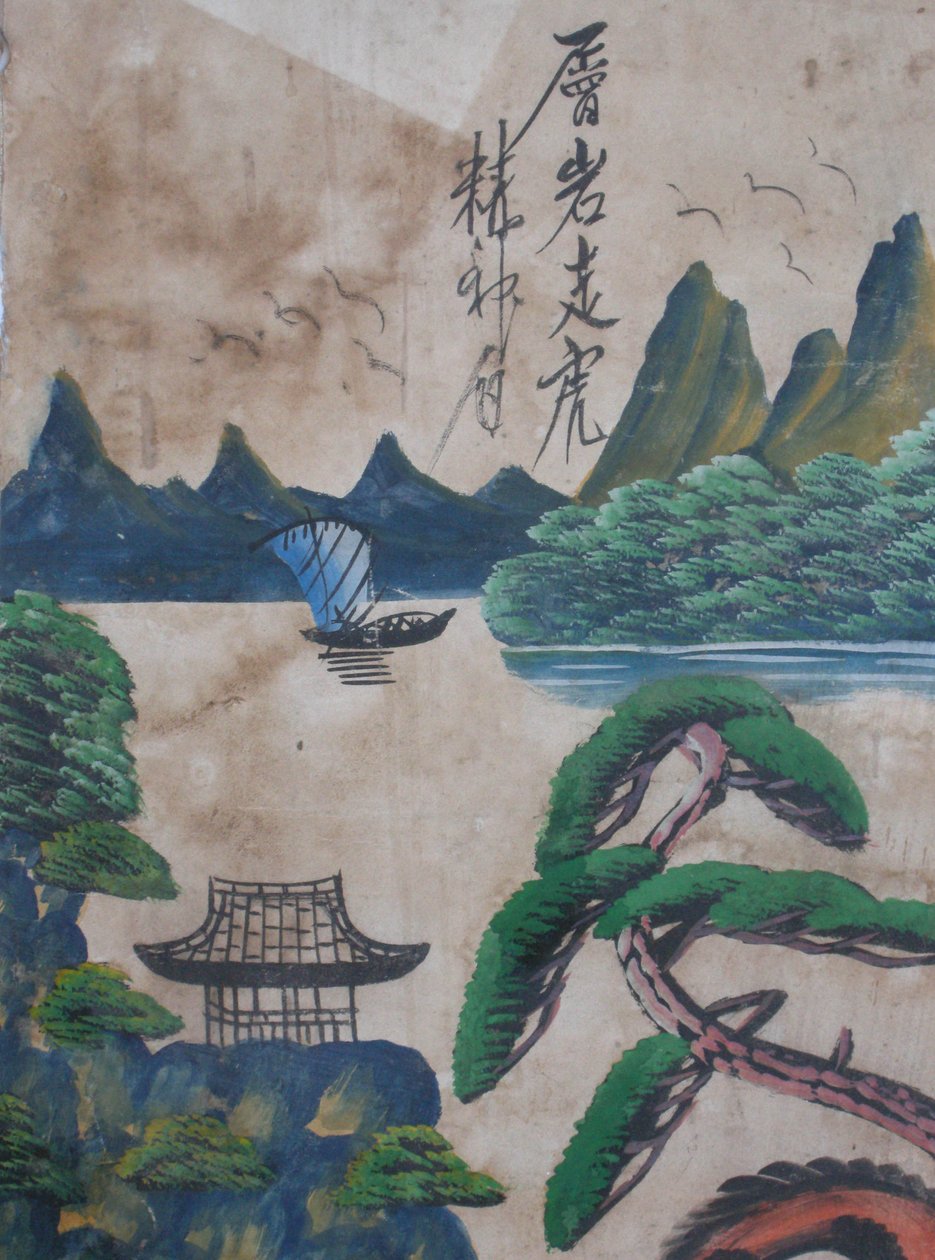 層岩走虎
精神自